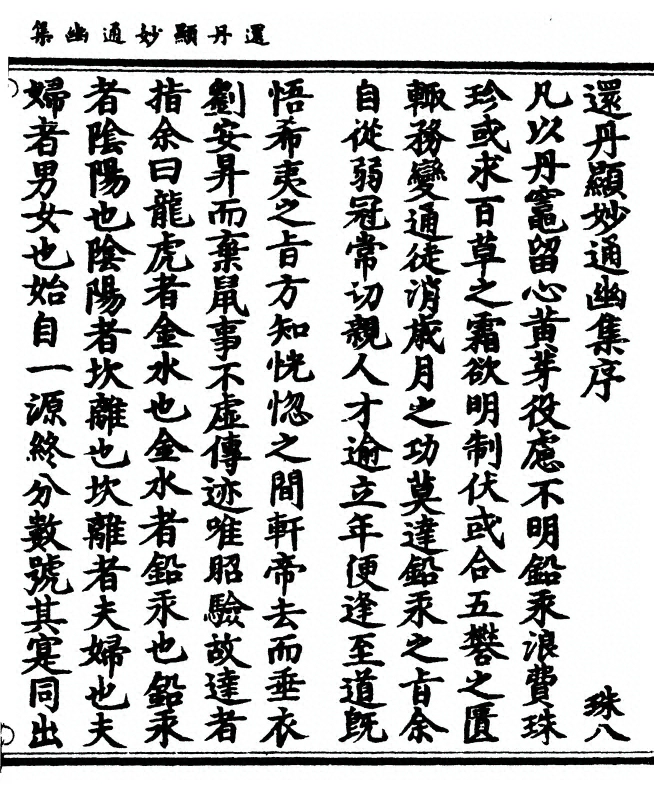 還丹顯妙通幽集
還丹顯妙通幽集序
珠八
凡以丹竈留心黄芽役慮不明鉛汞浪費珠
珍或求百草之霜欲明制伏或合五礬之匱
輙務變通徒消歲月之功莫達鉛汞之㫖余
自從弱冠常切親人才逾立年便逢至道旣
悟希夷之㫖方知恍惚之間軒帝去而垂衣
劉安昇而棄鼠事不虛傳迹唯昭驗故達者
指余曰龍虎者金水也金水者鉛汞也鉛汞
者陰陽也陰陽者坎離也坎離者夫婦也夫
婦者男女也始自一源終分數號其寔同出